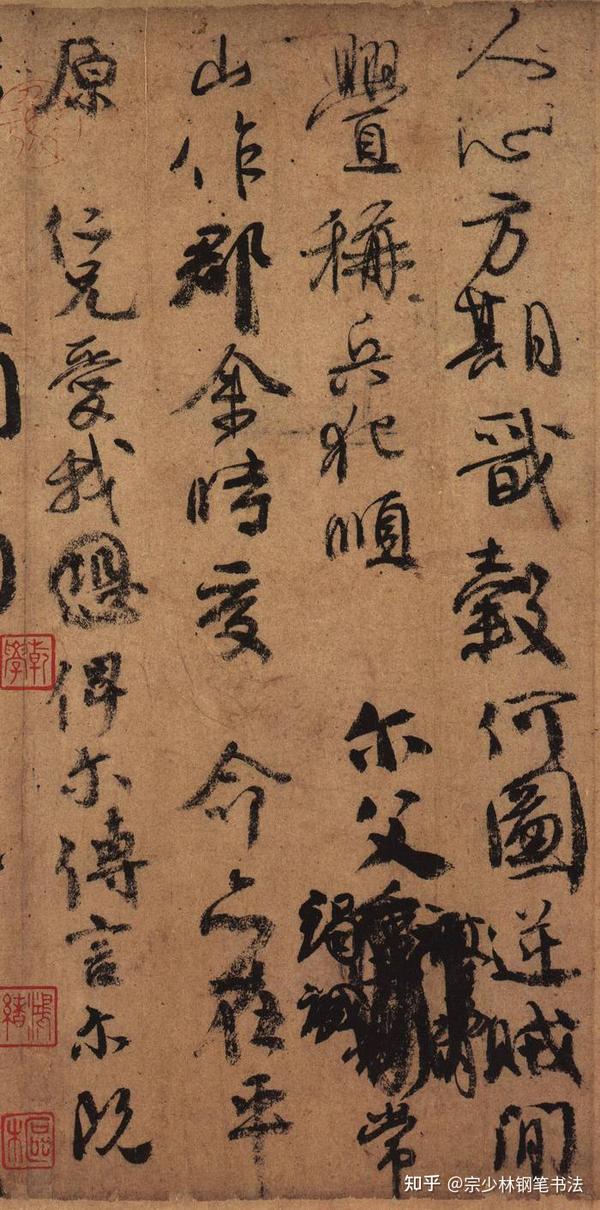 人心方期戩穀何圖逆賊間
釁稱兵犯順 尔父竭誠常
山作郡余時受 命亦在平
原 仁兄愛我恐俾尔傳言尔既
乾學
知乎 @宗少林钢笔书法